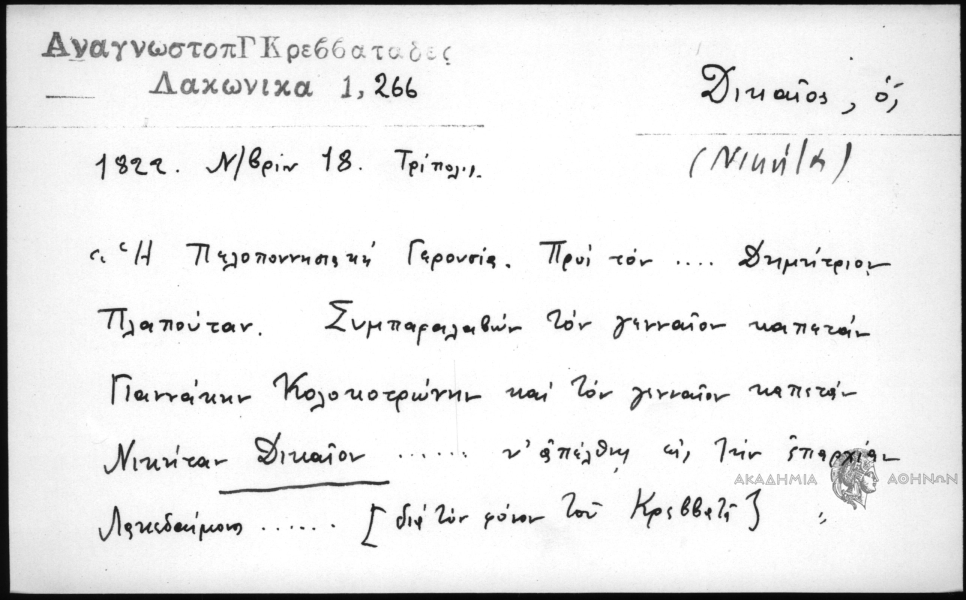 ΑναγνωστοπΓΚρεββαταδες
Λακωνικα 1, 266
Δικαῖος, ὁ,
(Νικήτα)
1822. Ν/βρίου 18. Τρίπολις.
« Ἡ Πελοποννησιακή Γερουσία. Πρός τόν .... Δημήτριον
Πλαπούταν. Συμπαραλαβών τόν γενναῖον καπετάν
Γιαννάκην Κολοκοτρώνην καί τόν γενναῖον καπετάν
Νικήταν Δικαῖον ...... ν' ἀπέλθῃς εἰς τήν ἐπαρχίαν
Λακεδαίμονος ...... [διά τόν φόνον τοῦ Κρεββατᾶ] »
ΑΚΑΔΗΜΙΑ ΑΘΗΝΩΝ